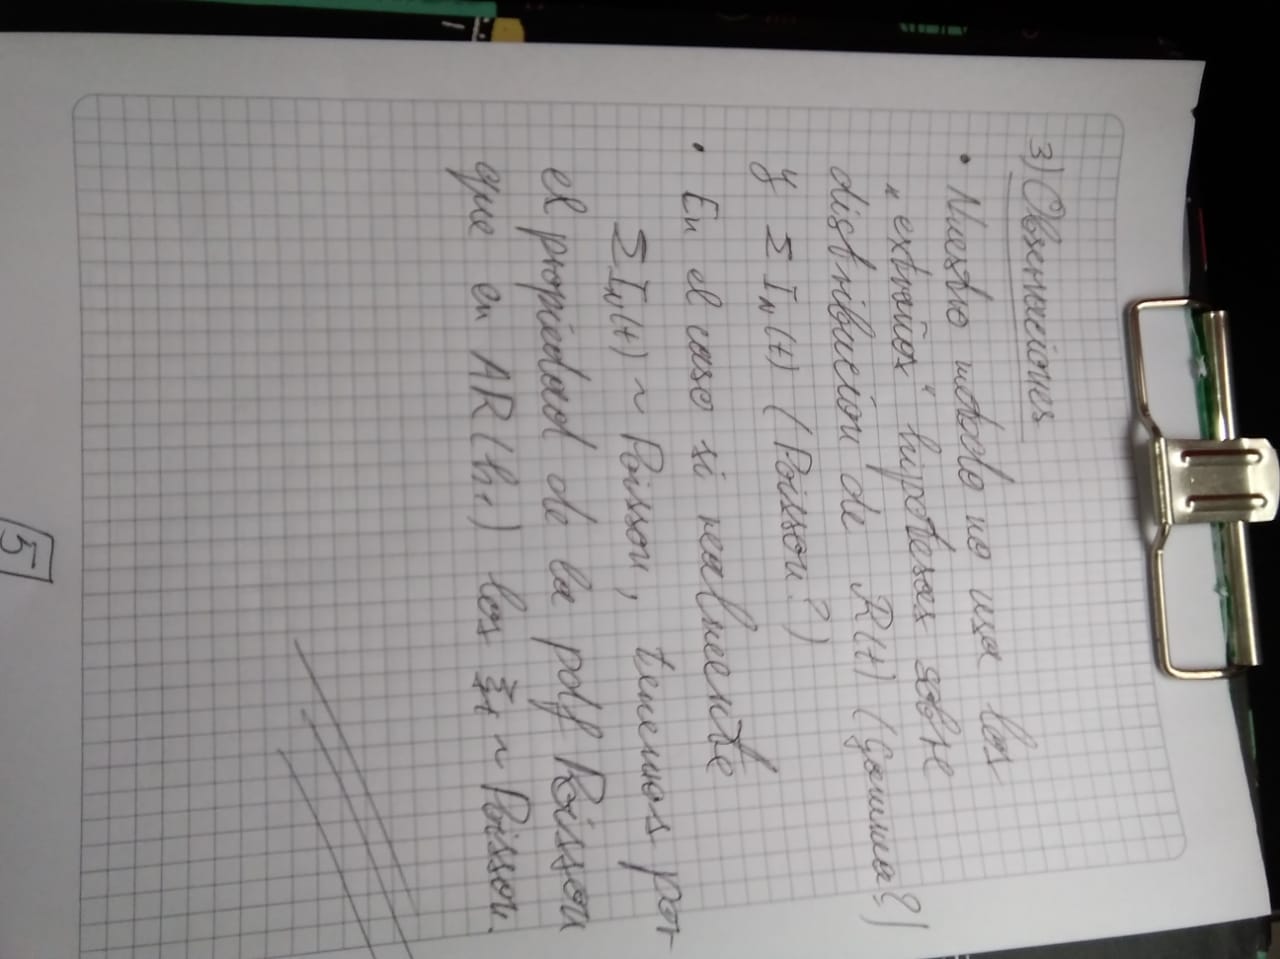 3) Observaciones
• Nuestro metodo no usa los
„extraños“ hipoteses sobre
distribución de R(t) (Gamma?)
y Σ I_N(t) (Poisson?)
• En el caso si realmente
Σ I_N(t) ~ Poisson, tenemos por
el propiedad de la pdf Poisson
que en AR(h_1) los ξ_t ~ Poisson.
5